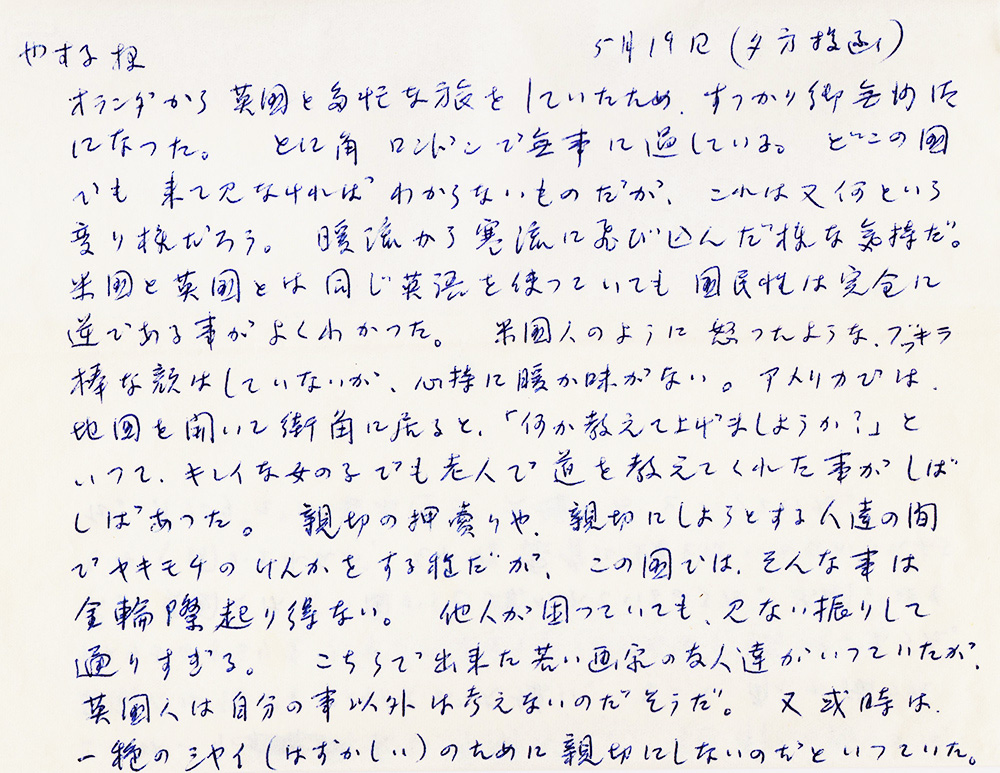 やする様
5月19日(夕方投函)
オランダから英国と多忙な旅をしていたため、すつかり御無沙汰
になつた。 とに角ロンドンで無事に過している。 どこの国
でも来て見なければわからないものだが、これは又何という
変り様だろう。 暖流から寒流に飛び込んだ様な気持だ。
米国と英国とは同じ英語を使つていても国民性は完全に
逆である事がよくわかつた。 米国人のように怒つたような、ブッキラ
棒な顔はしていないが、心持に暖か味がない。アメリカでは、
地図を開いて街角に居ると、「何か教えて上げましようか?」と
いつて、キレイな女の子でも老人で道を教えてくれた事がしば
しばあつた。 親切の押賣りや、親切にしようとする人達の間
でヤキモチのけんかをする程だが、この国では、そんな事は
金輪際起り得ない。 他人が困つていても、見ない振りして
通りすぎる。 こちらで出来た若い画家の友人達がいつていたが、
英国人は自分の事以外は考えないのだそうだ。 又或時は、
一種のシヤイ(はずかしい)のために親切にしないのだといつていた。